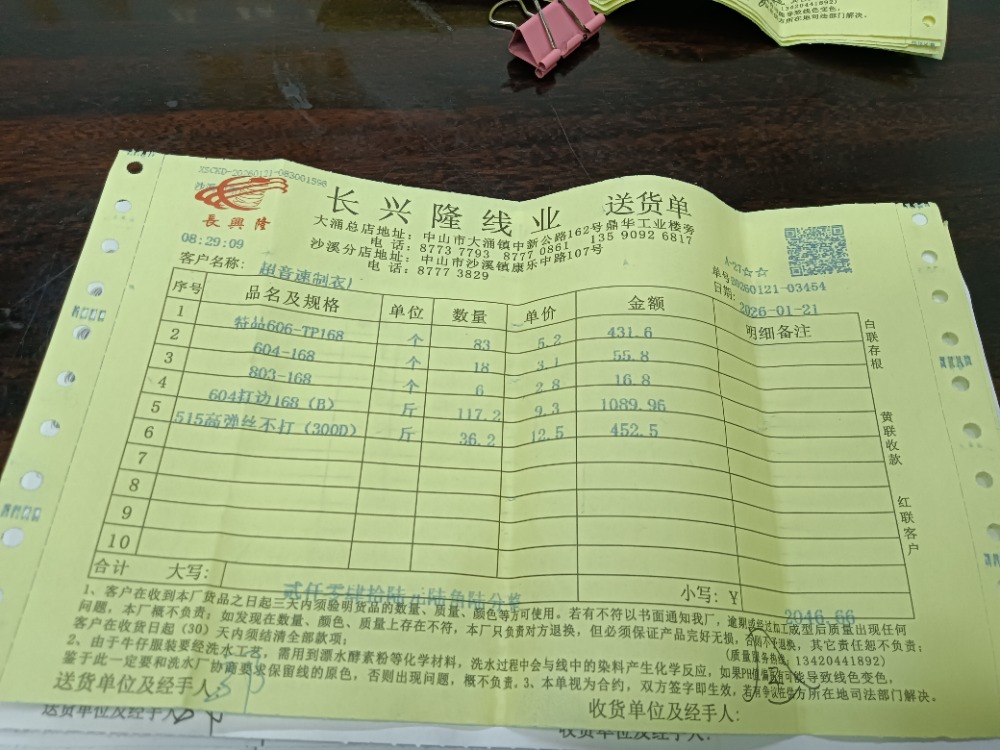 13420441892)
能导致线色变色，
方所在地司法部门解决。
XSCKD-20260121-083601590
長興隆
长兴隆线业 送货单
大涌总店地址：中山市大涌镇中新公路162号鼎华工业楼旁
电话：8773 7793 8777 0861 135 9092 6817
沙溪分店地址：中山市沙溪镇康乐中路107号
电话：8777 3829
08:29:09
A-21☆☆
单号：20260121-03464
日期：2026-01-21
客户名称：超音速制衣厂
序号 品名及规格 单位 数量 单价 金额 明细备注
1 特品606-TP168 个 83 5.2 431.6
2 604-168 个 18 3.1 55.8
3 803-168 个 6 2.8 16.8
4 604打边168（B） 斤 117.2 9.3 1089.96
5 515高弹丝不打（300D） 斤 36.2 12.5 452.5
6
7
8
9
10
合计 大写：贰仟零肆拾陆元陆角陆分整 小写：¥ 2046.66
白联存根
黄联收款
红联客户
1、客户在收到本厂货品之日起三天内须验明货品的数量、质量、颜色等方可使用。若有不符以书面通知我厂，逾期或经过加工成型后质量出现任何
问题，本厂概不负责；如发现在数量、颜色、质量上存在不符，本厂只负责对方退换，但必须保证产品完好无损，否则不予退换，其它责任恕不负责；
客户在收货日起（30）天内须结清全部款项；
(质量服务热线：13420441892)
2、由于牛仔服装要经洗水工艺，需用到漂水酵素粉等化学材料，洗水过程中会与线中的染料产生化学反应，如果PH值偏高有可能导致线色变色，
鉴于此一定要和洗水厂协商要求保留线的原色，否则出现问题，概不负责。3、本单视为合约，双方签字即生效，若有争议在供方所在地司法部门解决。
送货单位及经手人：
收货单位及经手人：
送货单位及经手人
收货单位及经手人：